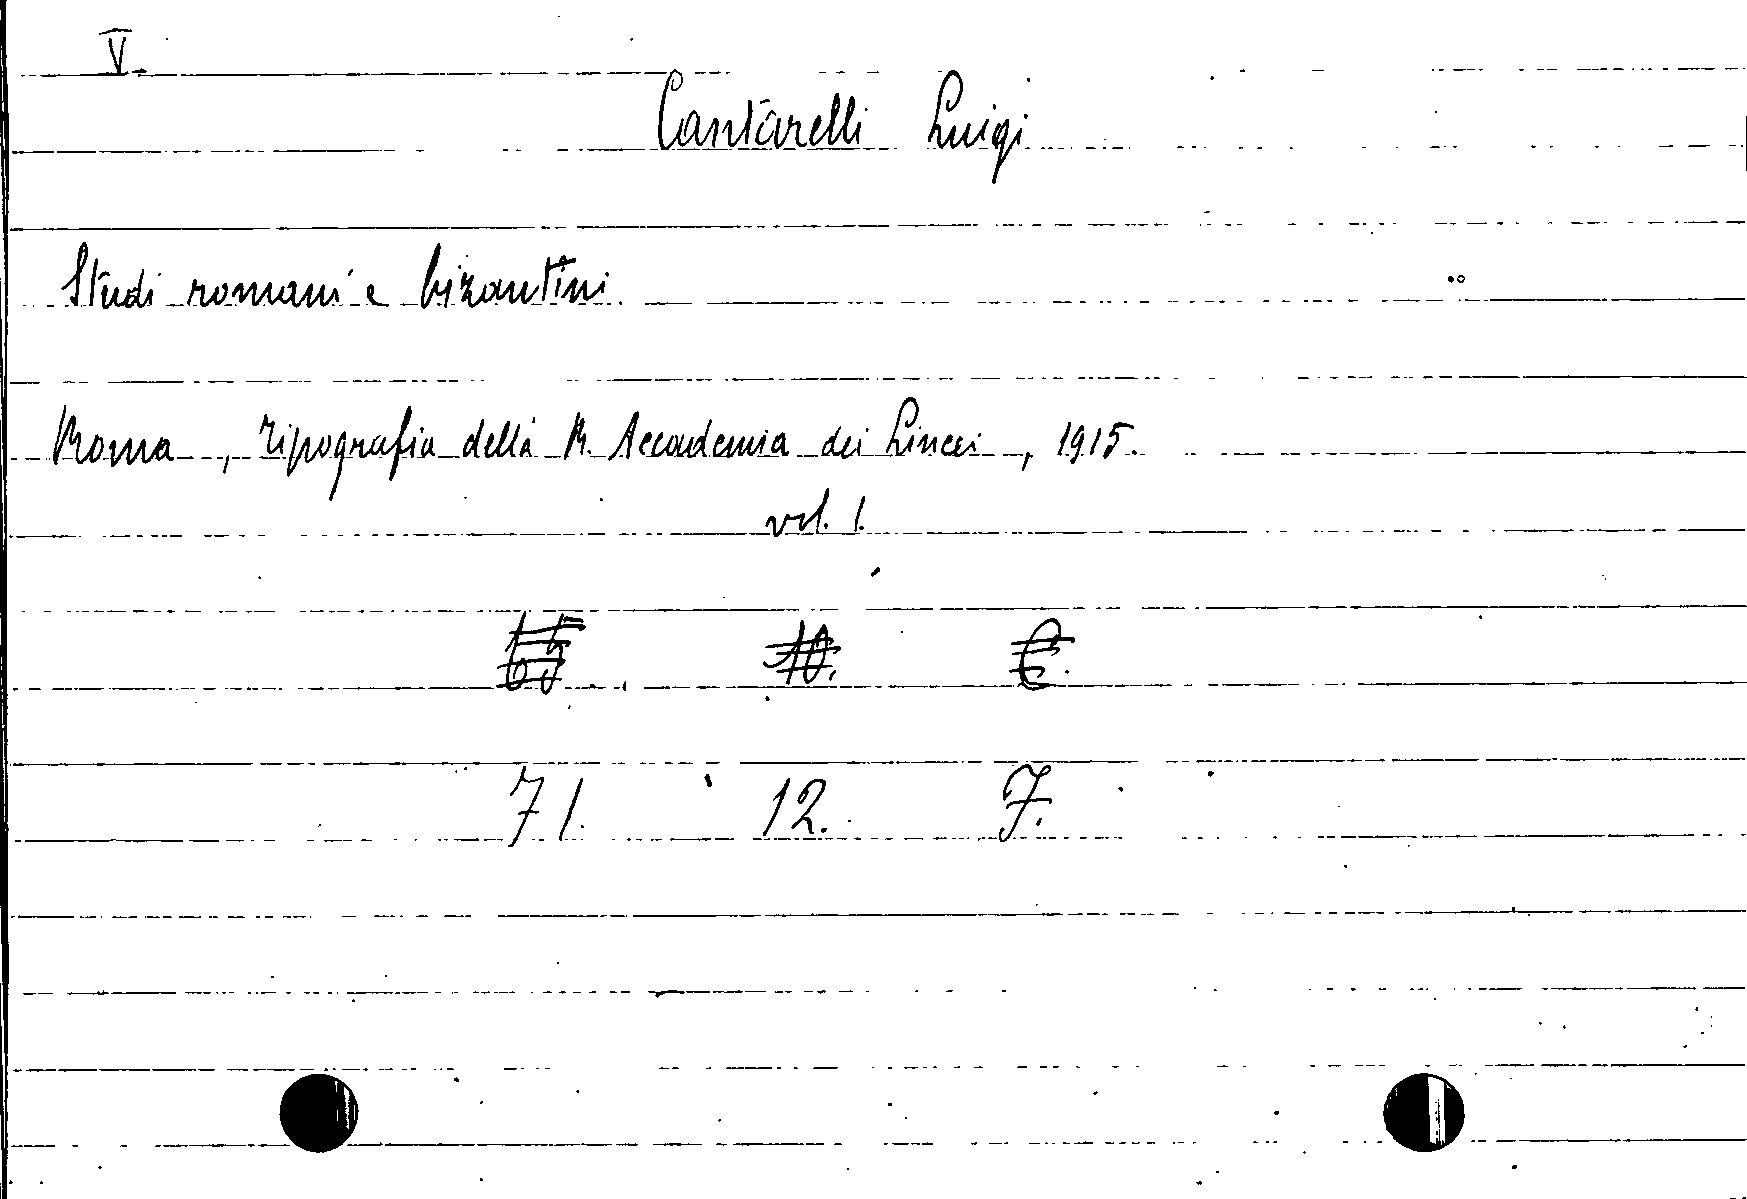 V.
Cantarelli Luigi
Studi romani e bizantini.
Roma, Tipografia della R. Accademia dei Lincei, 1915.
vol. 1.
10. C.
71. 12. F.